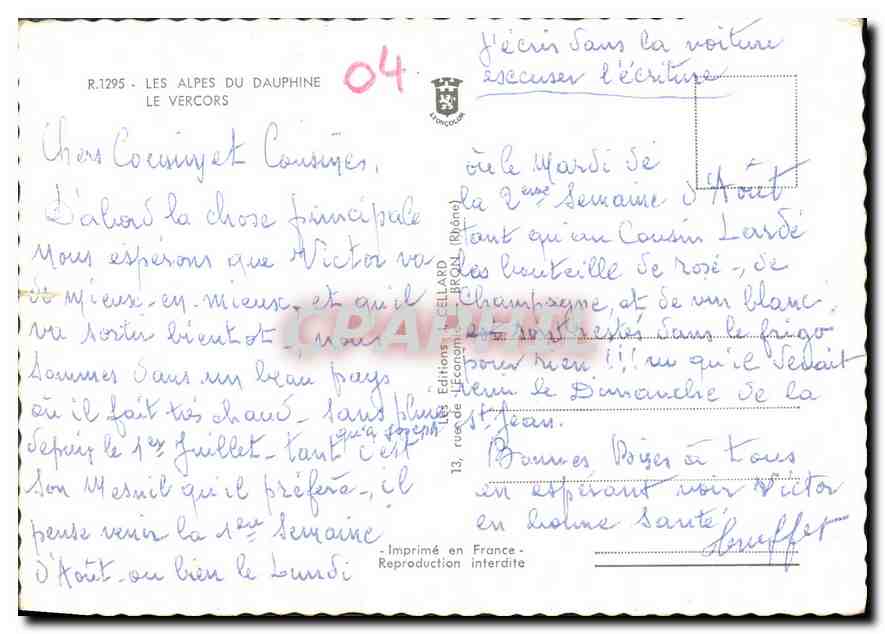 R.1295 - LES ALPES DU DAUPHINE
LE VERCORS
04
LYONCOLOR
J'écris dans la voiture
excuser l'écriture
Chers Cousins et Cousines,
D'abord la chose principale
nous espérons que Victor va
de mieux-en-mieux-et qu'il
va sortir bientot, nous
sommes dans un beau pays
où il fait très chaud-sans pluie
depuis le 1er Juillet-tant qu'à Joseph c'est
son Mesnil qu'il préfère-, il
pense venir la 1ère Semaine
d'Août-ou bien le Lundi
où le Mardi de
la 2eme Semaine d'Août
tant qu'au Cousin Lardé
les bouteille de rosé-, de
Champagne, et de vin blanc
sont restés dans le frigo
pour rien !!! vu qu'il devait
venir le Dimanche de la
St Jean.
Bonnes Bises à tous
en espérant voir Victor
en bonne santé
Les Editions J. CELLARD
13, rue de l'Economie - BRON (Rhône)
- Imprimé en France -
Reproduction interdite
CPAREMA